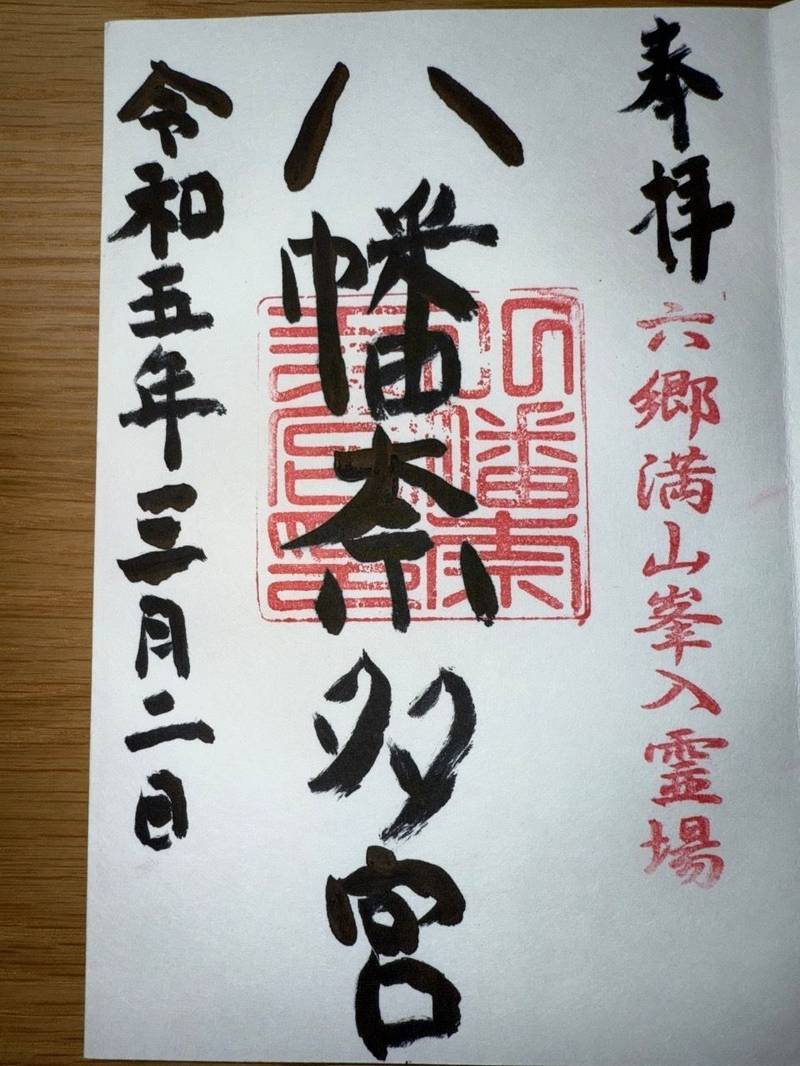 奉拝
六郷満山峯入霊場
八幡奈多宮
令和五年三月二日